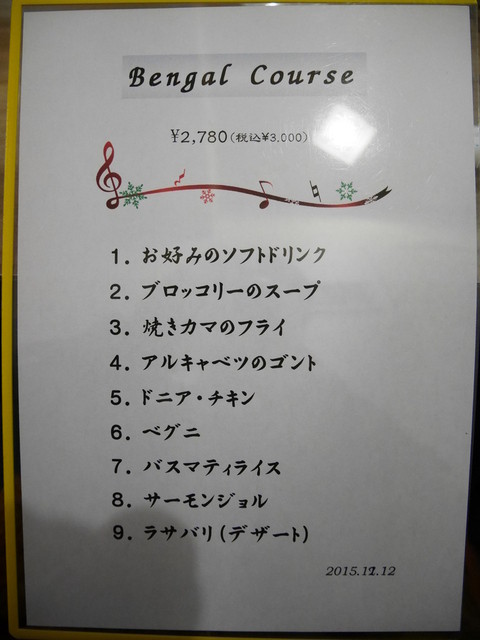 Bengal Course
¥2,780(税込¥3.000)
1. お好みのソフトドリンク
2. ブロッコリーのスープ
3. 焼きカマのフライ
4. アルキャベツのゴント
5. ドニア・チキン
6. ベグニ
7. バスマティライス
8. サーモンジョル
9. ラサバリ(デザート)